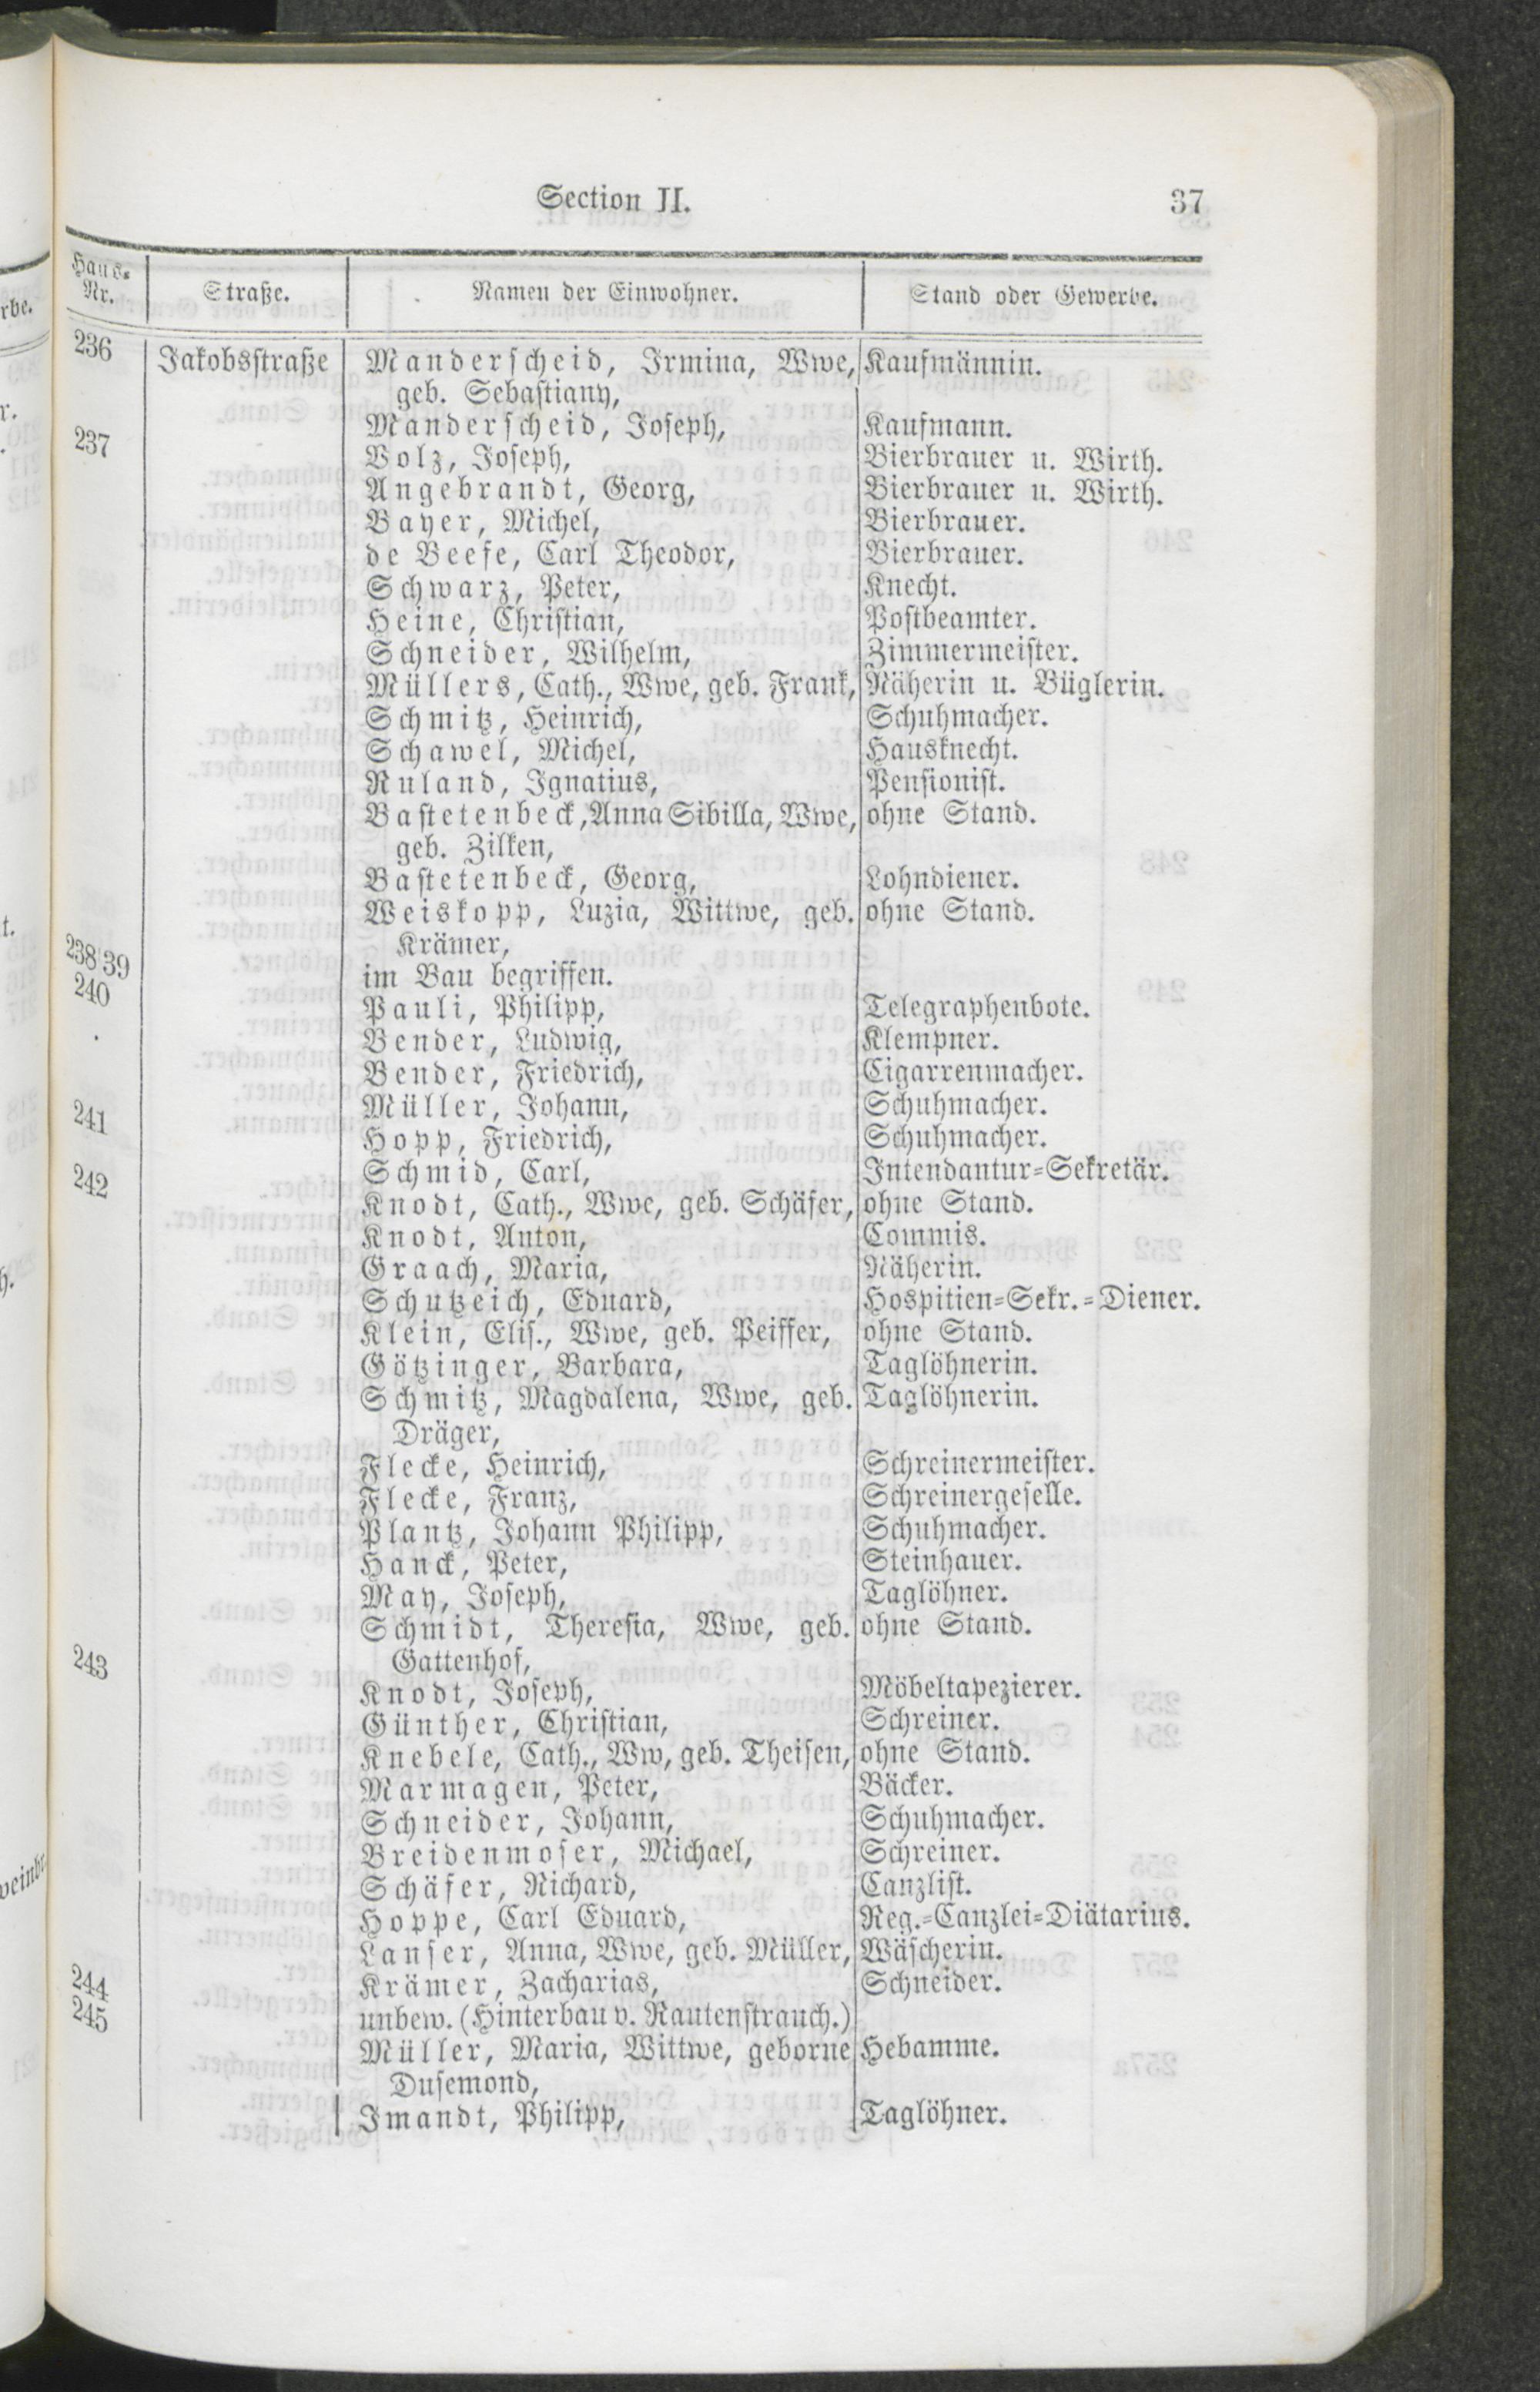 Section II.
37
Haus-
Nr.
Straße.
Namen der Einwohner.
Stand oder Gewerbe.
236 Jakobsstraße Manderscheid, Irmina, Wwe, Kaufmännin.
geb. Sebastiany,
Manderscheid, Joseph, Kaufmann.
237 Volz, Joseph, Bierbrauer u. Wirth.
Angebrandt, Georg, Bierbrauer u. Wirth.
Bayer, Michel, Bierbrauer.
de Beefe, Carl Theodor, Bierbrauer.
Schwarz, Peter, Knecht.
Heine, Christian, Postbeamter.
Schneider, Wilhelm, Zimmermeister.
Müllers, Cath., Wwe, geb. Frank, Näherin u. Büglerin.
Schmitz, Heinrich, Schuhmacher.
Schawel, Michel, Hausknecht.
Ruland, Ignatius, Pensionist.
Bastetenbeck, Anna Sibilla, Wwe, ohne Stand.
geb. Zilken,
Bastetenbeck, Georg, Lohndiener.
Weiskopp, Luzia, Wittwe, geb. ohne Stand.
Krämer,
238/39 im Bau begriffen.
240 Pauli, Philipp, Telegraphenbote.
Bender, Ludwig, Klempner.
Bender, Friedrich, Cigarrenmacher.
Müller, Johann, Schuhmacher.
241 Hopp, Friedrich, Schuhmacher.
Schmid, Carl, Intendantur-Sekretär.
242 Knodt, Cath., Wwe, geb. Schäfer, ohne Stand.
Knodt, Anton, Commis.
Graach, Maria, Näherin.
Schutzeich, Eduard, Hospitien-Sekr.-Diener.
Klein, Elis., Wwe, geb. Peiffer, ohne Stand.
Götzinger, Barbara, Taglöhnerin.
Schmitz, Magdalena, Wwe, geb. Taglöhnerin.
Dräger,
Flecke, Heinrich, Schreinermeister.
Flecke, Franz, Schreinergeselle.
Plantz, Johann Philipp, Schuhmacher.
Hanck, Peter, Steinhauer.
May, Joseph, Taglöhner.
Schmidt, Theresia, Wwe, geb. ohne Stand.
Gattenhof,
243 Knodt, Joseph, Möbeltapezierer.
Günther, Christian, Schreiner.
Knebele, Cath., Ww, geb. Theisen, ohne Stand.
Marmagen, Peter, Bäcker.
Schneider, Johann, Schuhmacher.
Breidenmoser, Michael, Schreiner.
Schäfer, Richard, Canzlist.
Hoppe, Carl Eduard, Reg.-Canzlei-Diätarius.
Lanser, Anna, Wwe, geb. Müller, Wäscherin.
Krämer, Zacharias, Schneider.
244 unbew. (Hinterbau v. Rautenstrauch.)
245 Müller, Maria, Wittwe, geborne Hebamme.
Dusemond,
Imandt, Philipp, Taglöhner.